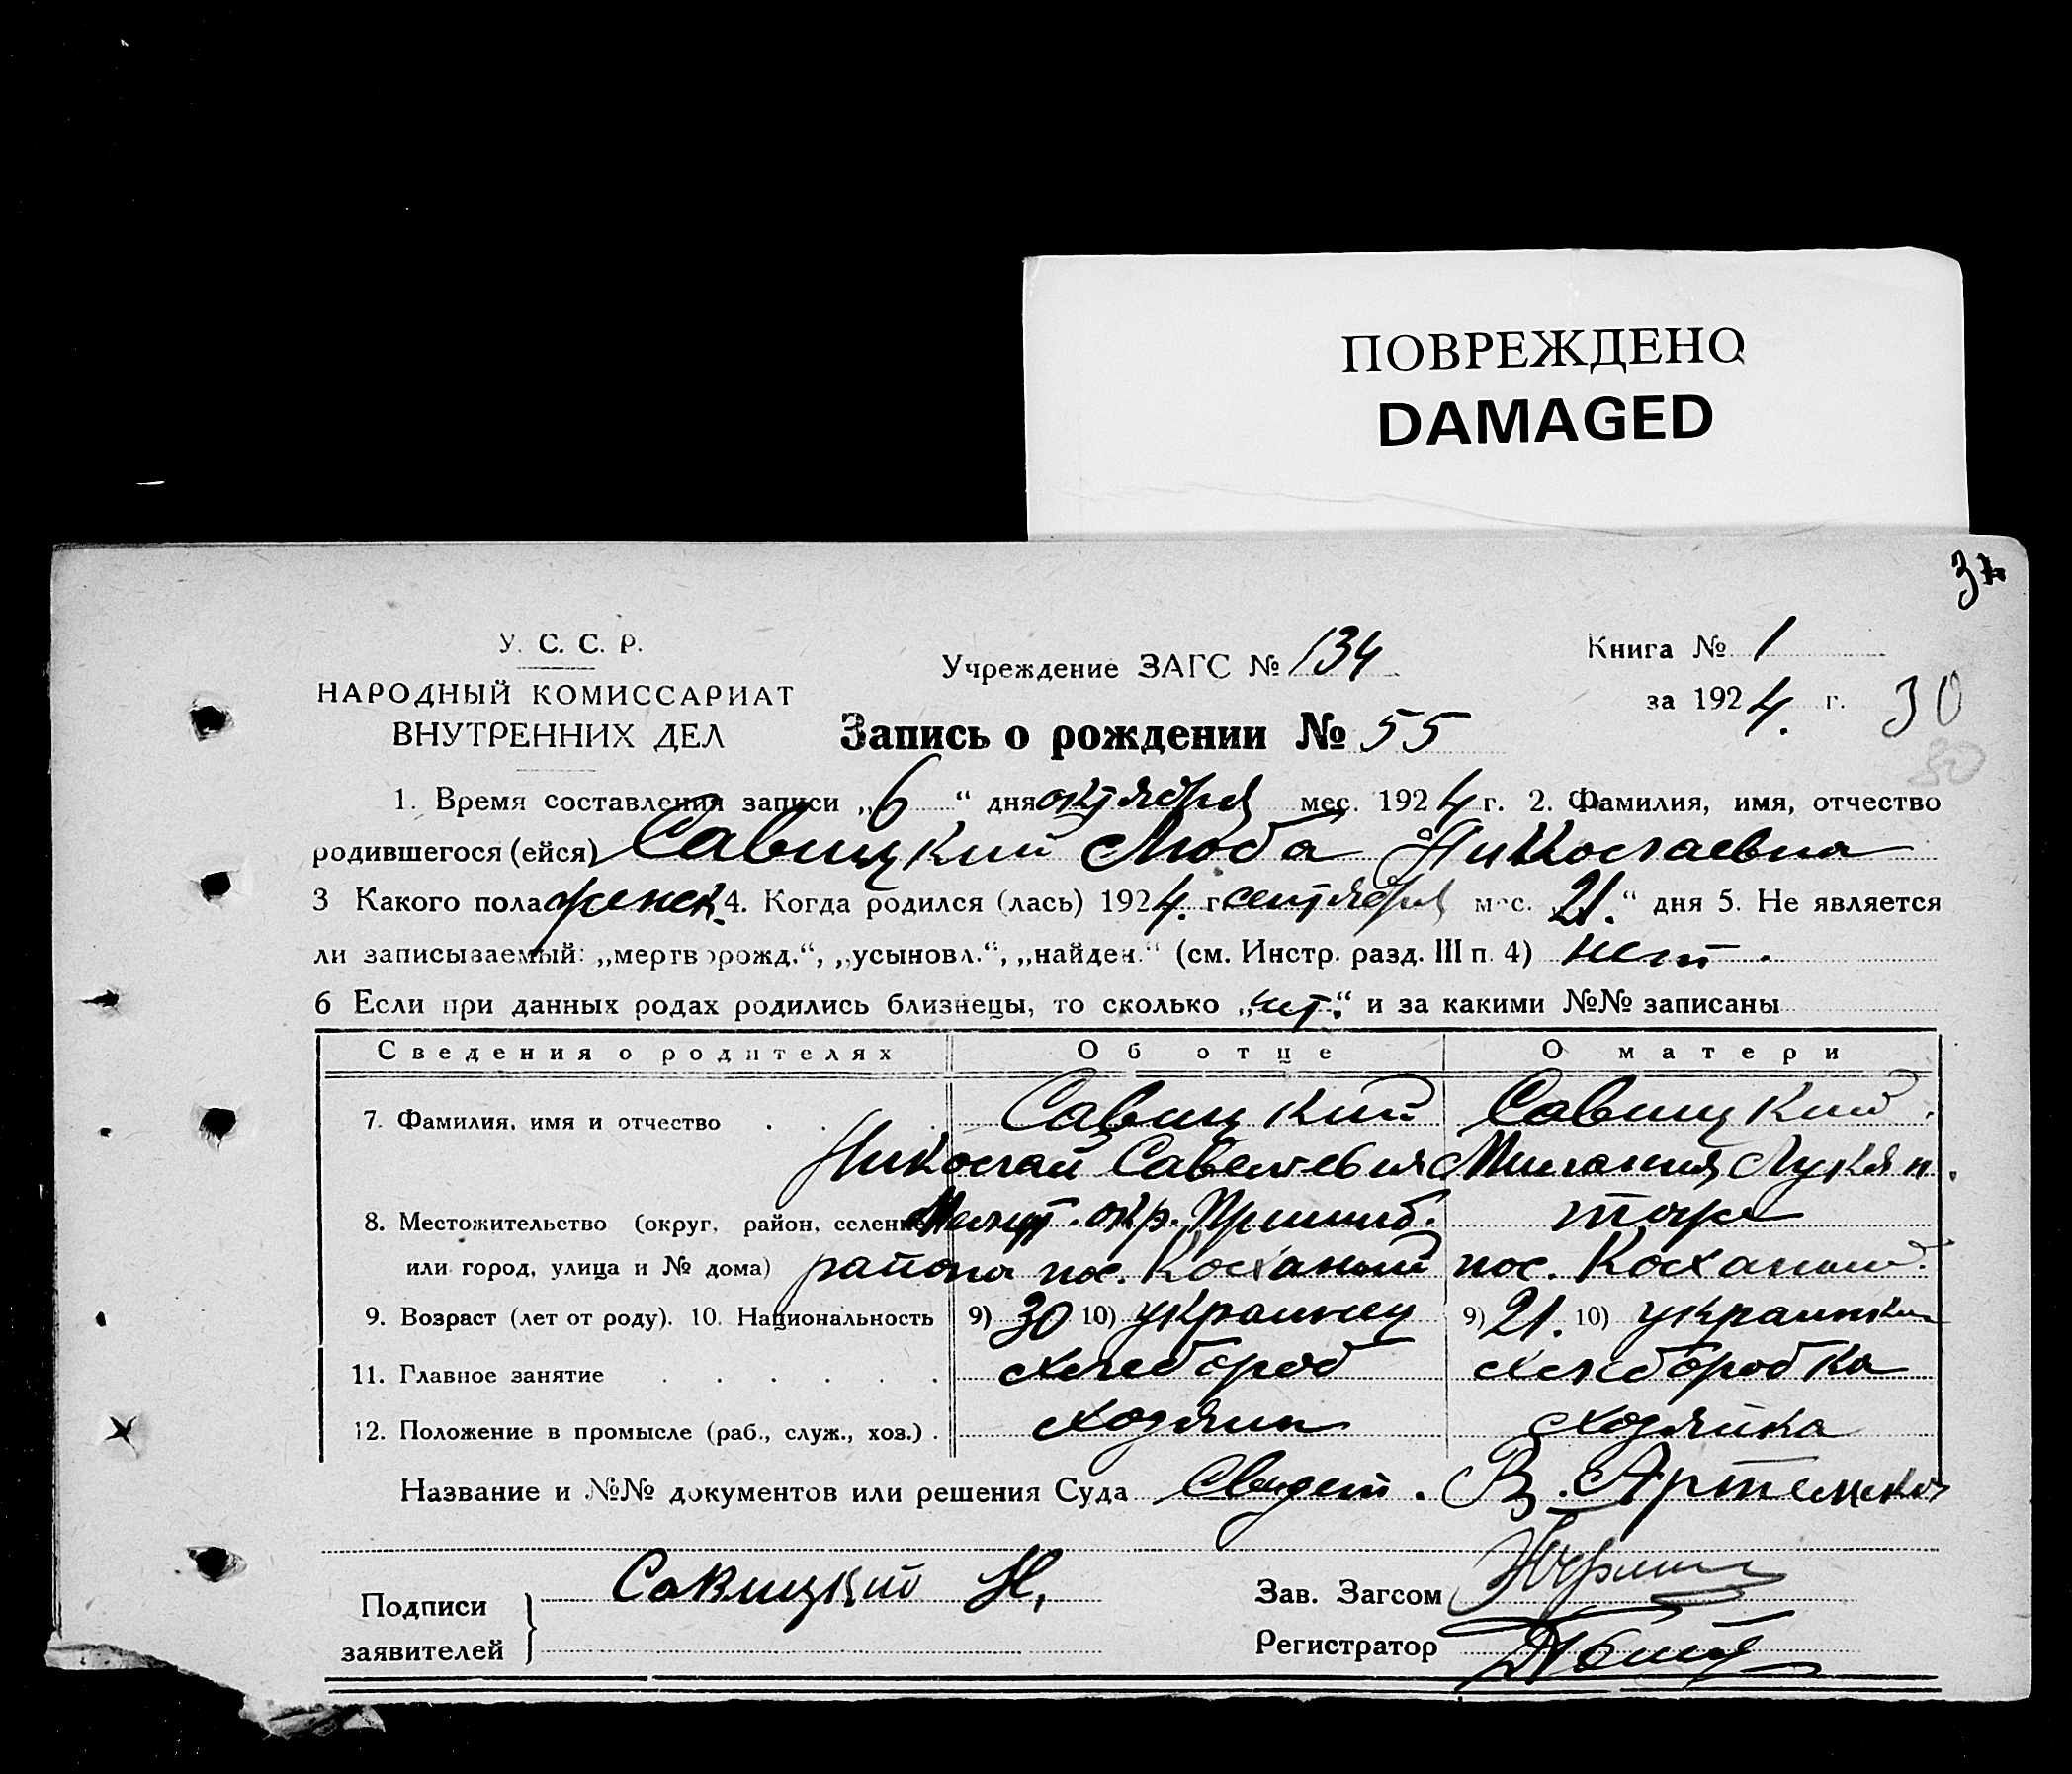 ПОВРЕЖДЕНО
DAMAGED
У. С. С. Р.
НАРОДНЫЙ КОМИССАРИАТ
ВНУТРЕННИХ ДЕЛ
Учреждение ЗАГС № 134
Книга № 1
за 1924. г. 30
30
Запись о рождении № 55
1. Время составления записи „6“ дня октября мес. 1924 г. 2. Фамилия, имя, отчество
родившегося (ейся) Савицкий Люба Николаевна
3 Какого пола женск. 4. Когда родился (лась) 1924. г. сентября мес. „21.“ дня 5. Не является
ли записываемый: „мертворожд.“, „усыновл.“, „найден.“ (см. Инстр. разд. III п. 4) нет.
6 Если при данных родах родились близнецы, то сколько „нет.“ и за какими №№ записаны
Сведения о родителях Об отце О матери
7. Фамилия, имя и отчество Савицкий Савицкий
Николай Савельевич Лукян.
8. Местожительство (округ, район, селение Мелит. окр. Пришиб. тоже
или город, улица и № дома) района пос. Коханый пос. Коханый
9. Возраст (лет от роду). 10. Национальность 9) 30 10) украинец 9) 21. 10) украинка
11. Главное занятие хлебороб хлеборобка
12. Положение в промысле (раб., служ., хоз.) хозяин хозяйка
Название и №№ документов или решения Суда Свидет. В. Артемска
Подписи заявителей Савицкий Н.
Зав. Загсом
Регистратор